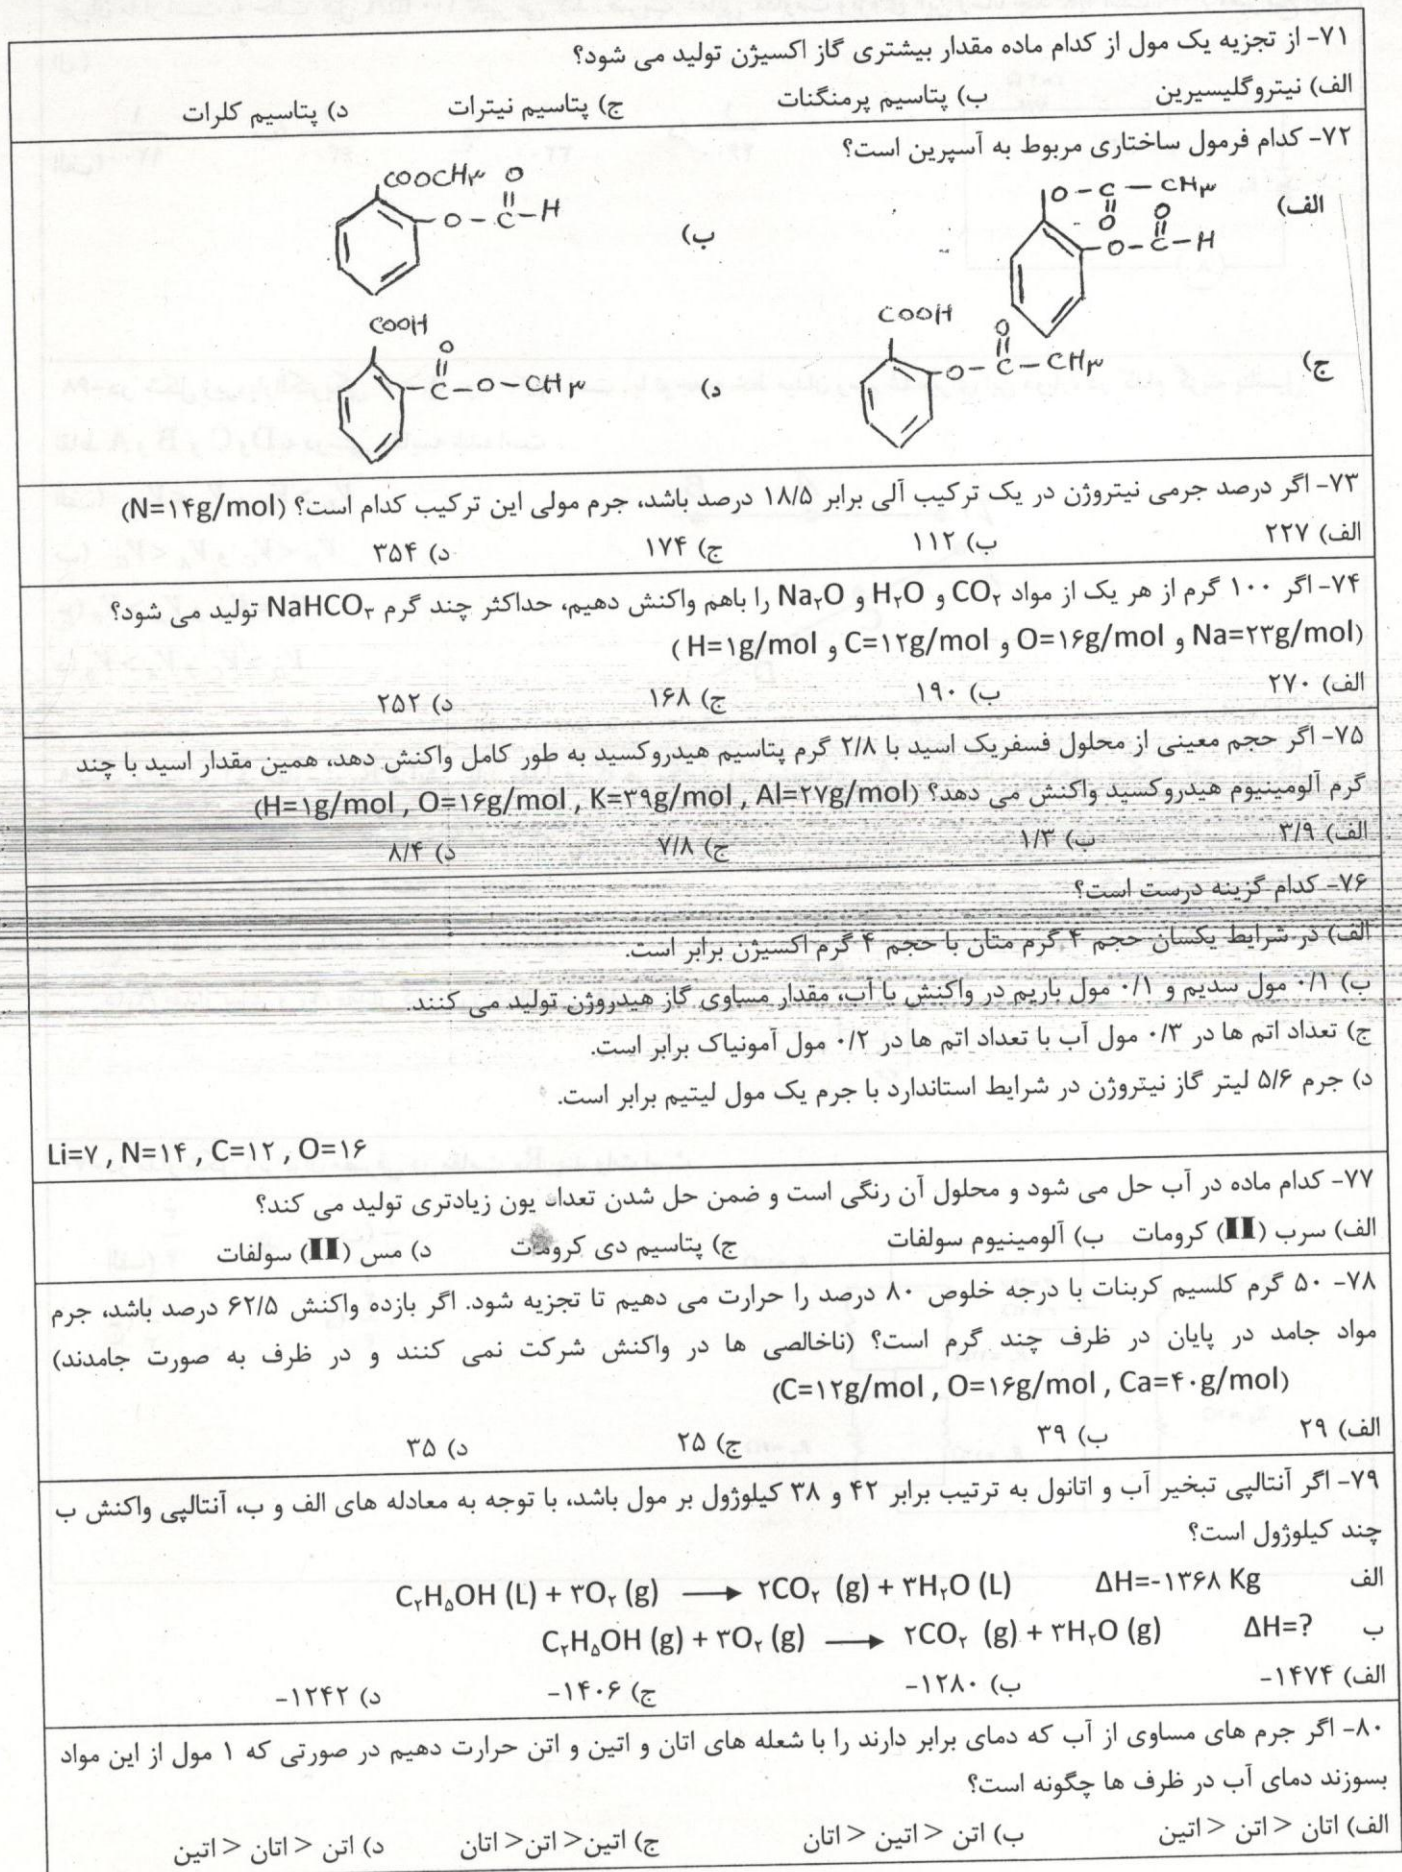 ۷۱- از تجزیه یک مول از کدام ماده مقدار بیشتری گاز اکسیژن تولید می شود؟
الف) نیتروگلیسیرین ب) پتاسیم پرمنگنات ج) پتاسیم نیترات د) پتاسیم کلرات
۷۲- کدام فرمول ساختاری مربوط به آسپرین است؟
الف) O-C-CH۳ O O O-C-H
ب) COOCH۳ O O-C-H
ج) COOH O O-C-CH۳
د) COOH O C-O-CH۳
۷۳- اگر درصد جرمی نیتروژن در یک ترکیب آلی برابر ۱۸/۵ درصد باشد، جرم مولی این ترکیب کدام است؟ (N=۱۴g/mol)
الف) ۲۲۷ ب) ۱۱۲ ج) ۱۷۴ د) ۳۵۴
۷۴- اگر ۱۰۰ گرم از هر یک از مواد CO۲ و H۲O و Na۲O را باهم واکنش دهیم، حداکثر چند گرم NaHCO۳ تولید می شود؟
(Na=۲۳g/mol و O=۱۶g/mol و C=۱۲g/mol و H=۱g/mol )
الف) ۲۷۰ ب) ۱۹۰ ج) ۱۶۸ د) ۲۵۲
۷۵- اگر حجم معینی از محلول فسفریک اسید با ۲/۸ گرم پتاسیم هیدروکسید به طور کامل واکنش دهد، همین مقدار اسید با چند
گرم آلومینیوم هیدروکسید واکنش می دهد؟ (H=۱g/mol , O=۱۶g/mol , K=۳۹g/mol , Al=۲۷g/mol)
الف) ۳/۹ ب) ۱/۳ ج) ۷/۸ د) ۸/۴
۷۶- کدام گزینه درست است؟
الف) در شرایط یکسان حجم ۴ گرم متان با حجم ۴ گرم اکسیژن برابر است.
ب) ۰/۱ مول سدیم و ۰/۱ مول باریم در واکنش با آب، مقدار مساوی گاز هیدروژن تولید می کنند.
ج) تعداد اتم ها در ۰/۳ مول آب با تعداد اتم ها در ۰/۲ مول آمونیاک برابر است.
د) جرم ۵/۶ لیتر گاز نیتروژن در شرایط استاندارد با جرم یک مول لیتیم برابر است.
Li=۷ , N=۱۴ , C=۱۲ , O=۱۶
۷۷- کدام ماده در آب حل می شود و محلول آن رنگی است و ضمن حل شدن تعداد یون زیادتری تولید می کند؟
الف) سرب (II) کرومات ب) آلومینیوم سولفات ج) پتاسیم دی کرومات د) مس (II) سولفات
۷۸- ۵۰ گرم کلسیم کربنات با درجه خلوص ۸۰ درصد را حرارت می دهیم تا تجزیه شود. اگر بازده واکنش ۶۲/۵ درصد باشد، جرم
مواد جامد در پایان در ظرف چند گرم است؟ (ناخالصی ها در واکنش شرکت نمی کنند و در ظرف به صورت جامدند)
(C=۱۲g/mol , O=۱۶g/mol , Ca=۴۰g/mol)
الف) ۲۹ ب) ۳۹ ج) ۲۵ د) ۳۵
۷۹- اگر آنتالپی تبخیر آب و اتانول به ترتیب برابر ۴۲ و ۳۸ کیلوژول بر مول باشد، با توجه به معادله های الف و ب، آنتالپی واکنش ب
چند کیلوژول است؟
الف C۲H۵OH (L) + ۳O۲ (g) ⟶ ۲CO۲ (g) + ۳H۲O (L) ΔH=-۱۳۶۸ Kg
ب C۲H۵OH (g) + ۳O۲ (g) ⟶ ۲CO۲ (g) + ۳H۲O (g) ΔH=?
الف) ۱۴۷۴- ب) ۱۲۸۰- ج) ۱۴۰۶- د) ۱۲۴۲-
۸۰- اگر جرم های مساوی از آب که دمای برابر دارند را با شعله های اتان و اتین و اتن حرارت دهیم در صورتی که ۱ مول از این مواد
بسوزند دمای آب در ظرف ها چگونه است؟
الف) اتان > اتن > اتین ب) اتن > اتین > اتان ج) اتین > اتن > اتان د) اتن > اتان > اتین